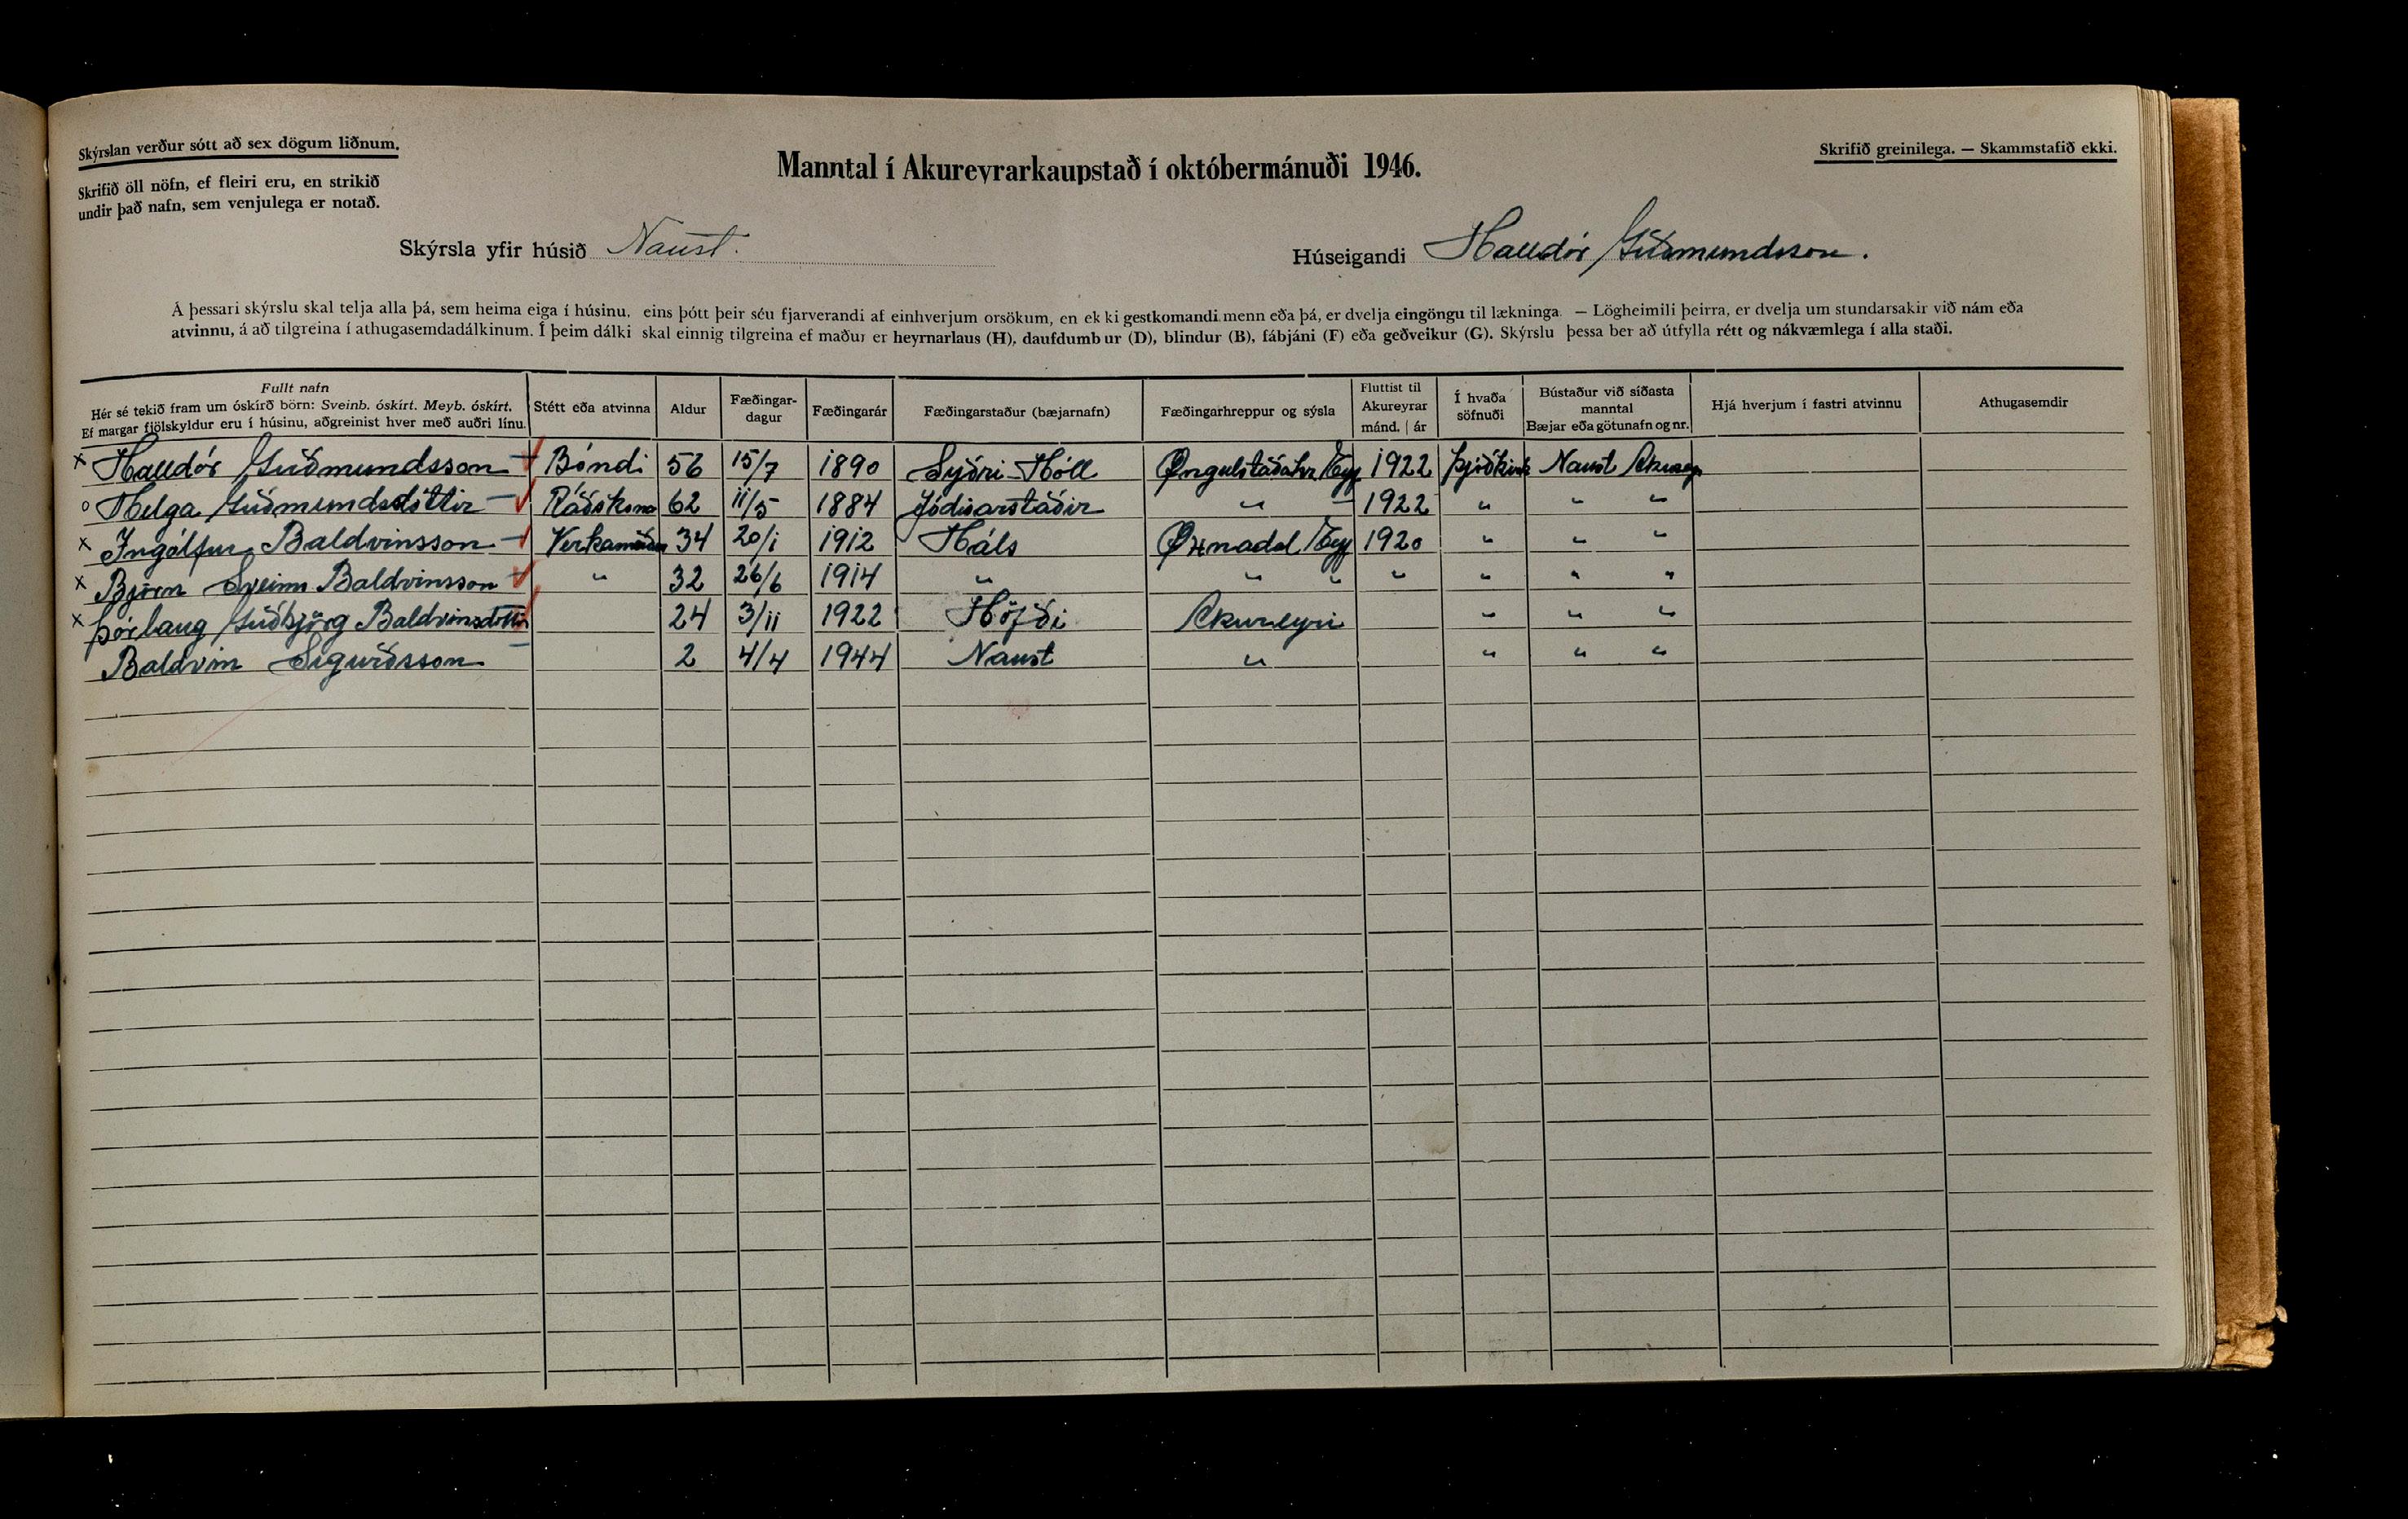 Skýrslan verður sótt að sex dögum liðnum.
Skrifið öll nöfn, ef fleiri eru, en strikið
undir það nafn, sem venjulega er notað.
Manntal í Akureyrarkaupstað í októbermánuði 1946.
Skrifið greinilega. — Skammstafið ekki.
Skýrsla yfir húsið Naust.
Húseigandi Halldór Guðmundsson.
Á þessari skýrslu skal telja alla þá, sem heima eiga í húsinu, eins þótt þeir séu fjarverandi af einhverjum orsökum, en ekki gestkomandi menn eða þá, er dvelja eingöngu til lækninga. — Lögheimili þeirra, er dvelja um stundarsakir við nám eða
atvinnu, á að tilgreina í athugasemdadálkinum. Í þeim dálki skal einnig tilgreina ef maður er heyrnarlaus (H), daufdumbur (D), blindur (B), fábjáni (F) eða geðveikur (G). Skýrslu þessa ber að útfylla rétt og nákvæmlega í alla staði.
Fullt nafn
Hér sé tekið fram um óskírð börn: Sveinb. óskírt. Meyb. óskírt.
Ef margar fjölskyldur eru í húsinu, aðgreinist hver með auðri línu.
Stétt eða atvinna
Aldur
Fæðingar-
dagur
Fæðingarár
Fæðingarstaður (bæjarnafn)
Fæðingarhreppur og sýsla
Fluttist til
Akureyrar
mánd. | ár
Í hvaða
söfnuði
Bústaður við síðasta
manntal
Bæjar eða götunafn og nr.
Hjá hverjum í fastri atvinnu
Athugasemdir
x Halldór Guðmundsson Bóndi 56 15/7 1890 Syðri-Hóll Öngulstaðahr. Eyj 1922 Þjóðkirk Naust Akurey
o Helga Guðmundsdóttir Ráðskona 62 11/5 1884 Jódisarstaðir " " 1922 " " "
x Ingólfur Baldvinsson Verkamaður 34 20/1 1912 Háls Öxnadal Eyj 1920 " " "
x Björn Sveinn Baldvinsson " 32 26/6 1914 " " " " " " "
x Þórlaug Guðbjörg Baldvinsdóttir 24 3/11 1922 Höfði Akureyri " " "
Baldvin Sigurðsson 2 4/4 1944 Naust " " " "